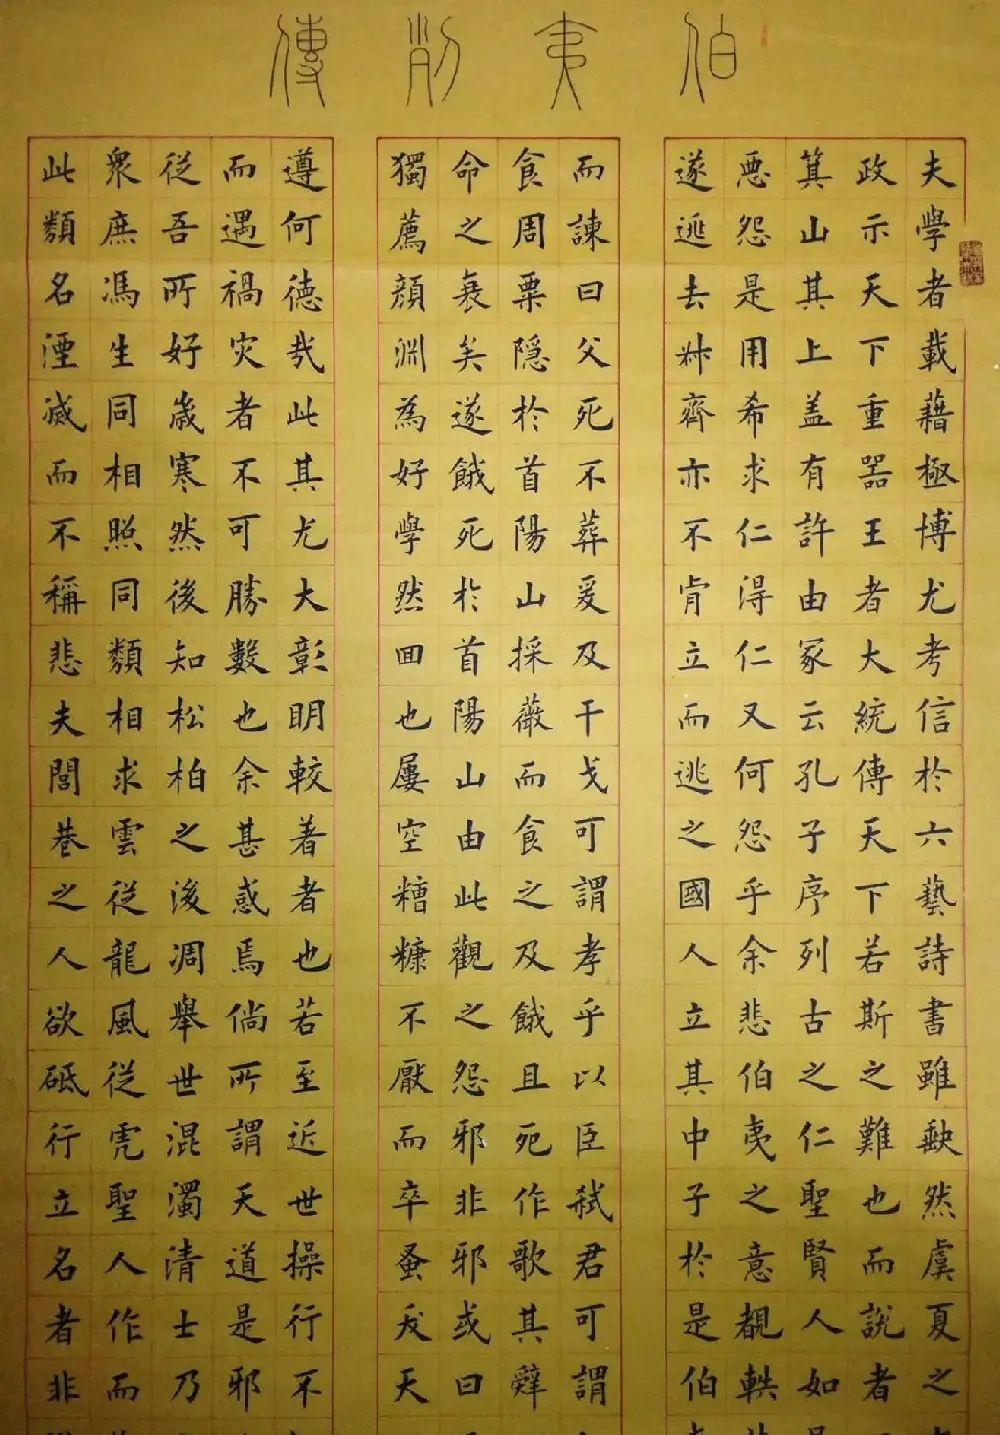 伯夷列傳
夫學者載藉極博尤考信於六藝詩書雖缺然虞夏之
政示天下重器王者大統傳天下若斯之難也而說者
箕山其上盖有許由冢云孔子序列古之仁聖賢人如
惡怨是用希求仁得仁又何怨乎余悲伯夷之意覩軼
遂逃去叔齊亦不肯立而逃之國人立其中子於是伯
而諫曰父死不葬爰及干戈可謂孝乎以臣弒君可謂
食周粟隱於首陽山採薇而食之及餓且死作歌其辭
命之衰矣遂餓死於首陽山由此觀之怨邪非邪或曰
獨薦顏淵為好學然回也屢空糟糠不厭而卒蚤夭天
遵何德哉此其尤大彰明較著者也若至近世操行不
而遇禍災者不可勝數也余甚惑焉倘所謂天道是邪
從吾所好歲寒然後知松柏之後凋舉世混濁清士乃
眾庶馮生同相照同類相求雲從龍風從虎聖人作而
此類名湮滅而不稱悲夫閭巷之人欲砥行立名者非